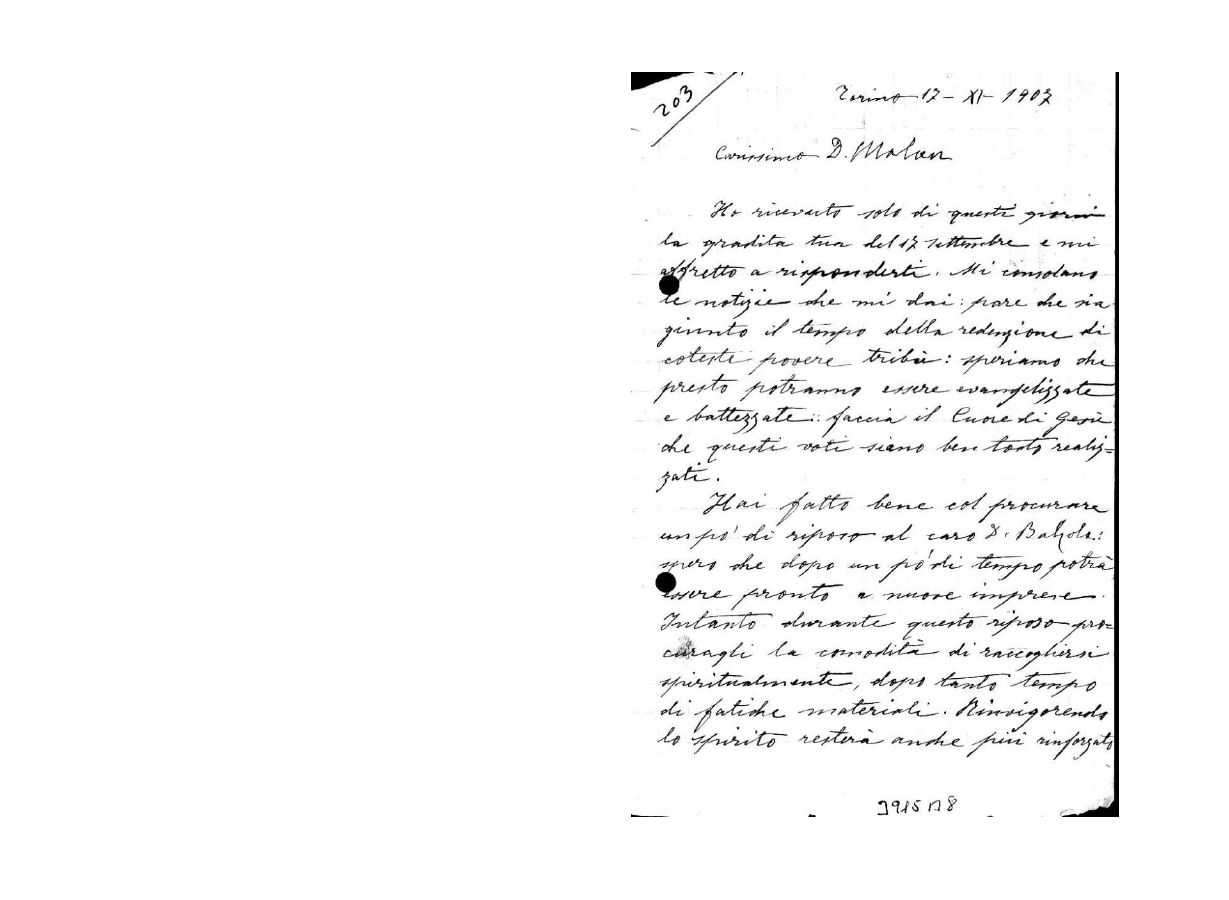 203
Torino 17 - XI - 1907
Carissimo D. Malan
Ho ricevuto solo di questi giorni
la gradita tua del 17 settembre e mi
affretto a risponderti. Mi consolano
le notizie che mi dai: pare che sia
giunto il tempo della redenzione di
coteste povere tribù: speriamo che
presto potranno essere evangelizzate
e battezzate: faccia il Cuore di Gesù
che questi voti siano ben tosto realiz=
zati.
Hai fatto bene col procurare
un po' di riposo al caro D. Balzola:
spero che dopo un po' di tempo potrà
essere pronto a nuove imprese.
Intanto durante questo riposo pro=
curagli la comodità di raccogliersi
spiritualmente, dopo tanto tempo
di fatiche materiali. Rinvigorendo
lo spirito resterà anche più rinforzato